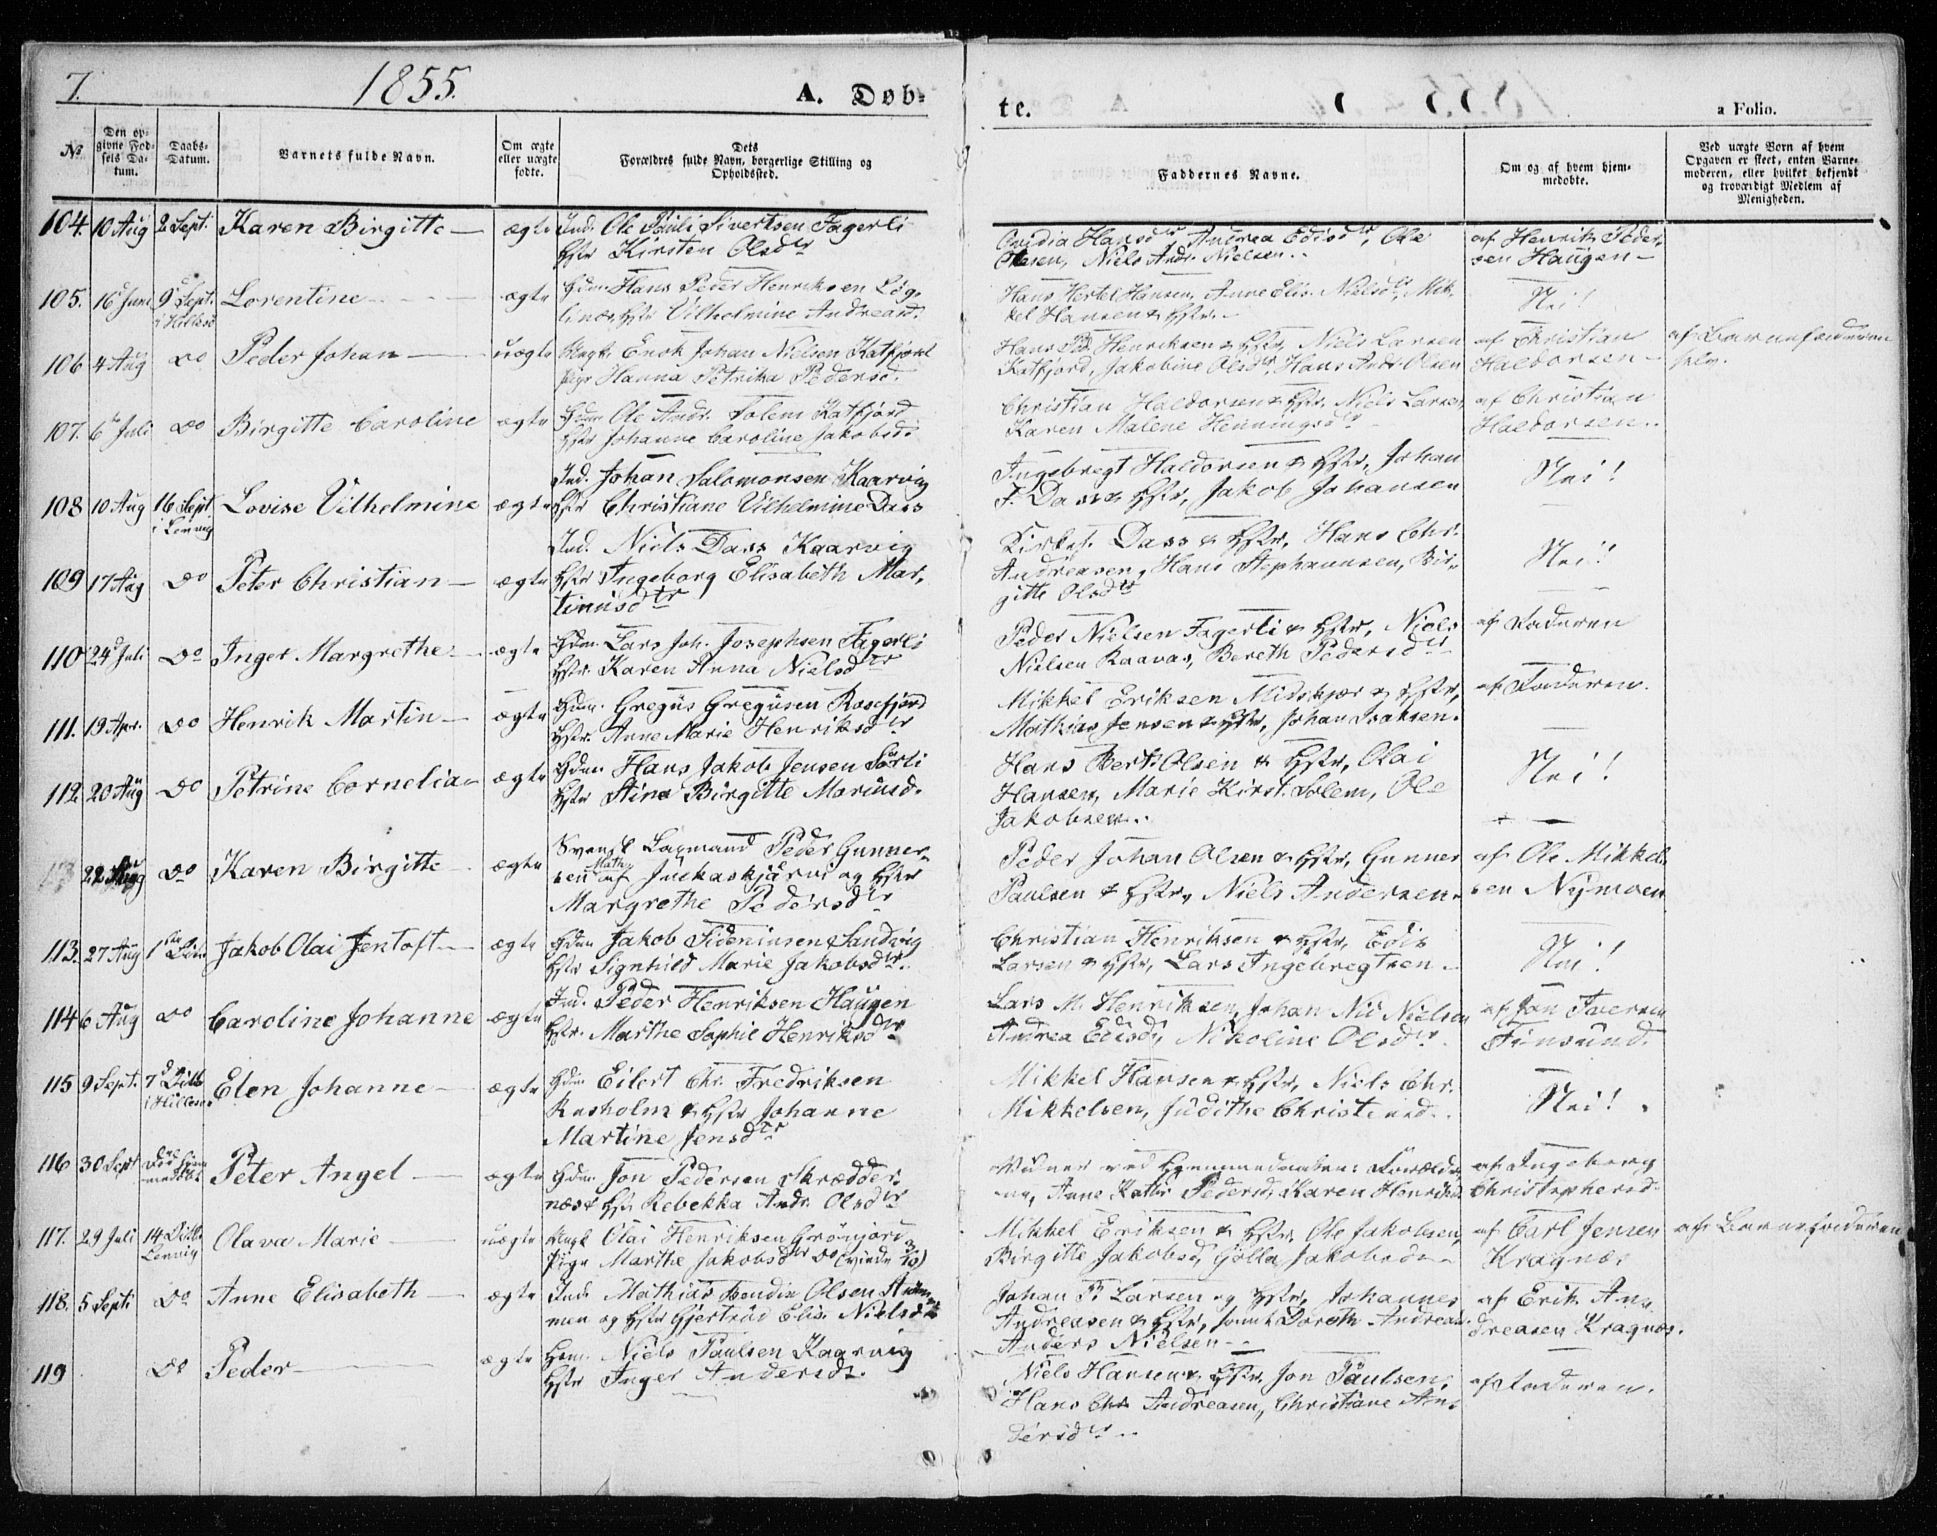 7.
1855.
A. Døb-
te.
a Folio.
No
Den op-
givne Fød-
sels Da-
tum.
Daabs-
Datum.
Barnets fulde Navn.
Om ægte
eller uægte
fødte.
Dets
Forældres fulde Navn, borgerlige Stilling og
Opholdssted.
Faddernes Navne.
Om og af hvem hjem-
medøbt.
Ved uægte Børn af hvem
Opgaven er skeet, enten Barne-
moderen, eller hvilket bekjendt
og troværdigt Medlem af
Menigheden.
104. 10 Aug 2 Sept. Karen Birgitte ægte Ind. Ole Pauli Sivertsen Fagerli
Hstr Kirsten Olsdr
Ovidia Hansdr, Andrea Edisdr, Ole
Olesen, Niels Andr. Nielsen.
af Henrik Peder-
sen Haugen
105. 16 Juni 9 Sept. Lorentine ægte Gdm. Hans Peder Henriksen Løg-
i Hillesø
linæs Hstr Vilhelmine Andreasd.
Hans Hertel Hansen, Anne Elis. Nielsdr, Mik-
kel Hansen & Hstr.
Nei!
106 4 Aug Do Peder Johan uægte Ungk. Enok Johan Nielsen Katfjord
Pige Hanna Petrika Pedersd.
Hans Ped. Henriksen & Hstr, Niels Larsen
Katfjord, Jakobine Olsdr, Hans Andr. Olsen
af Christian
Haldorsen
af Barnefaderen
selv.
107. 6 Juli Do Birgitte Caroline ægte Gdm Ole Andr. Solem Katfjord
Hstr Johanne Caroline Jakobsd.
Christian Haldorsen & Hstr, Niels Larsen,
Karen Malene Henningsdr
af Christian
Haldorsen.
108 10 Aug 16 Sept. Lovise Vilhelmine ægte
i Lenvig
Ind. Johan Salomonsen Kaarvig
Hstr Christiane Vilhelmine Dass
Ingebregt Haldorsen & Hstr, Johan
F. Dass & Hstr, Jakob Johansen
Nei!
109 17 Aug Do Peter Christian ægte
Ind. Niels Dass Kaarvig
Hstr Ingeborg Elisabeth Mar-
tinusdtr
Kirkes. Dass & Hstr, Hans Chr.
Andreasen, Hans Stephannsen, Bir-
gitte Olsdtr
Nei!
110 24 Juli Do Inger Margrethe ægte Gdm. Lars Joh. Josephsen Fagerli
Hstr Karen Anna Nielsdtr
Peder Nielsen Fagerli & Hstr, Niels
Nielsen Raavas, Bereth Pedersdtr
af Faderen
111. 19 Apr. Do Henrik Martin ægte Gdm. Gregus Gregusen Rossfjord
Hstr. Anne Marie Henriksdtr
Mikkel Eriksen Midskjær & Hstr,
Mathias Jensen & Hstr, Johan Isaksen.
af Faderen.
112. 20 Aug Do Petrine Cornelia ægte Gdm. Hans Jakob Jensen Sørli
Hstr Stina Birgitte Mariusd.
Hans Bert. Olsen & Hstr, Olai
Hansen, Marie Kirst. Solem, Ole
Jakobsen.
Nei!
22 Aug Do Karen Birgitte ægte
Svensk Lapmand Peder Gunner-
sen Math. af Juckaskjärvi og Hstr
Margrethe Pedersdtr
Peder Johan Olsen & Hstr, Gunner
Paulsen & Hstr, Niels Andersen.
af Ole Mikkel-
sen Nymoen
113. 27 Aug Jakob Olai Jentoft ægte Gdm Jakob Sideniusen Sandvig
Hstr Signhild Marie Jakobsdr.
Christian Henriksen & Hstr, Edis
Larsen & Hstr, Lars Ingebregtsen
Nei!
114 6 Aug Do Caroline Johanne ægte Ind. Peder Henriksen Haugen
Hstr. Marthe Sophie Henriksdtr
Lars M. Henriksen, Johan Nic Nielsen
Andrea Edisd, Nikoline Olsdtr
af Jon Iversen
Finsund.
115 9 Sept. 7d Ditto Elen Johanne ægte
i Hillesø
Gdm Eilert Chr. Fredriksen
Rusholm & Hstr Johanne
Martine Jensdtr
Mikkel Hansen & Hstr, Niels Chr.
Mikkelsen, Judithe Christensd.
Nei!
116 30 Sept Peter Angel ægte Gdm Jon Pedersen Skrædder-
næs & Hstr Rebekka Andr. Olsdtr
Vidner ved Hjemmedaaben: Foræld-
rene, Anne Kath. Pedersd, Karen Henriksd.
af Ingeborg
Christophersd.
117. 29 Juli 14 Ditto Olava Marie uægte
Lenvig
Ungk Olai Henriksen Grönjord
Pige Marthe Jakobsdtr Do
Mikkel Eriksen & Hstr, Ole Jakobsen,
Birgitte Jakobsd, Golla Jakobsd
af Carl Jensen
Kragnæs
af Barnefaderen.
118. 5 Septb Do Anne Elisabeth ægte Ind. Mathias Bendix Olsen
men og Hstr Gjertrud Elis. Nielsdtr
Johan P. Larsen og Hstr, Johannes
Andreasen & Hstr, samt Doroth. Andreasd.
Anders Nielsen
af Erik An-
dreasen Kragnæs.
119 Do Peder ægte Gdm. Niels Paulsen Kaarvig
Hstr Inger Andersd.
Niels Hansen & Hstr, Jon Paulsen,
Hans Chr Andreasen, Christiane An-
dersdr
af Faderen.